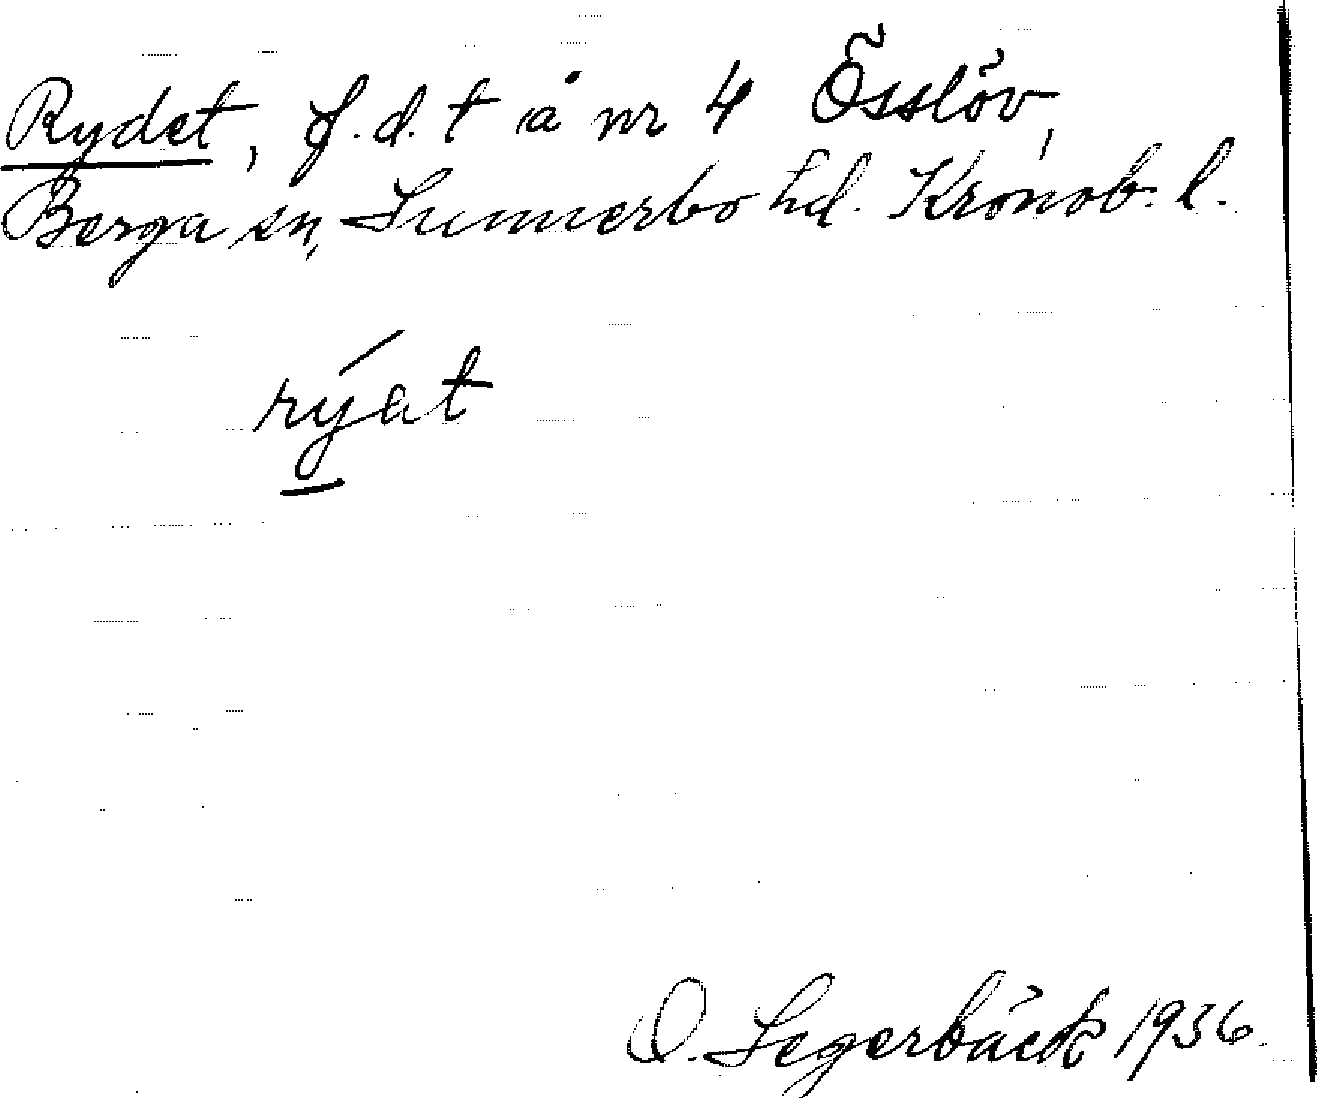 Rydet, f.d. t å nr 4 Össlöv,
Berga sn, Sunnerbo hd. Kronob. l.
rýat
O. Segerbäck 1936